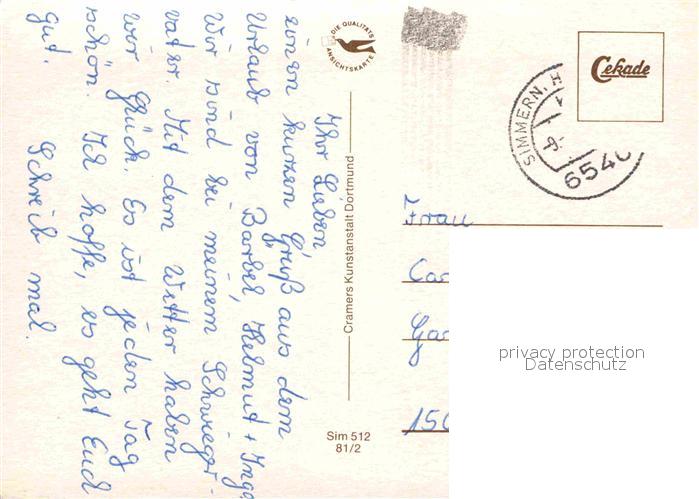 Ihr Lieben,
einen kurzen Gruß aus dem
Urlaub von Barbel, Helmut + Inga
Wir sind bei meinem Schwieger-
vater. Mit dem Wetter haben
wir Glück. Es ist jeden Tag
schön. Ich hoffe, es geht Euch
gut.
Schreib mal.
DIE QUALITÄTS
ANSICHTSKARTE
Cramers Kunstanstalt Dortmund
Sim 512
81/2
Cekade
SIMMERN, H
6540
Frau
privacy protection
Datenschutz